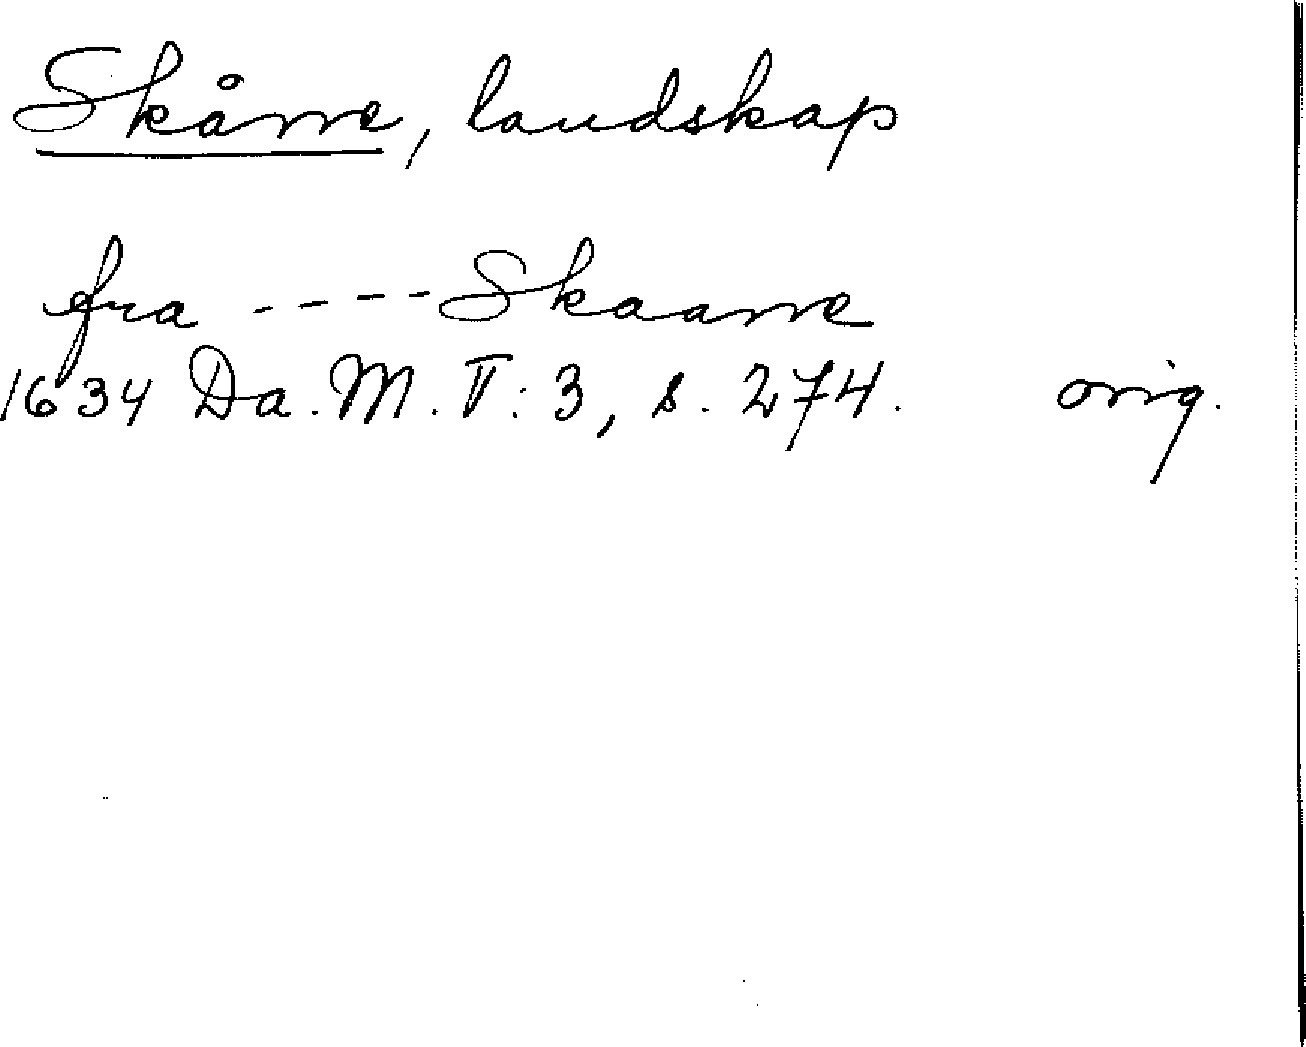 Skåne, landskap
fra ---- Skaane
1634 Da. M. V: 3, s. 274. orig.